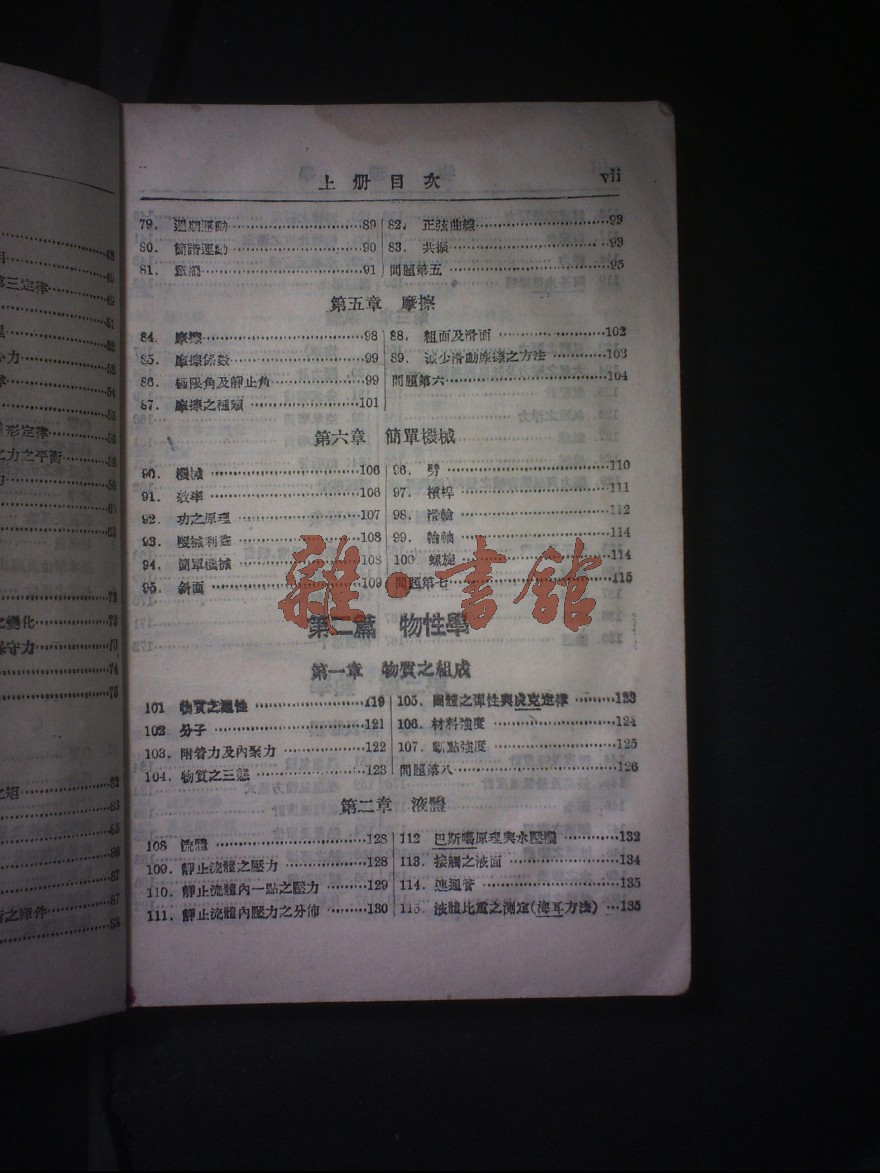 上册目次 vii
79. 週期運動 89
80. 簡諧運動 90
81. 單擺 91
82. 正弦曲線 93
83. 共振 93
問題第五 95
第五章 摩擦
84. 摩擦 98
85. 摩擦係數 99
86. 極限角及靜止角 99
87. 摩擦之種類 101
88. 粗面及滑面 102
89. 減少滑動摩擦之方法 103
問題第六 104
第六章 簡單機械
90. 機械 106
91. 效率 106
92. 功之原理 107
93. 機械利益 108
94. 簡單機械 108
95. 斜面 109
96. 劈 110
97. 槓桿 111
98. 滑輪 112
99. 輪軸 114
100 螺旋 114
問題第七 115
雜·書館
第二篇 物性學
第一章 物質之組成
101 物質之通性 119
102 分子 121
103. 附着力及內聚力 122
104. 物質之三態 123
105. 固體之彈性與虎克定律 123
106. 材料強度 124
107. 強度 125
問題第八 126
第二章 液體
108 流體 128
109. 靜止流體之壓力 128
110. 靜止流體內一點之壓力 129
111. 靜止流體內壓力之分佈 130
112 巴斯噶原理與水壓機 132
113. 接觸之液面 134
114. 連通管 135
115. 液體比重之測定(海耳方法) 135
第三定律
形定律
之力之平衡
之變化
保守力
之條件